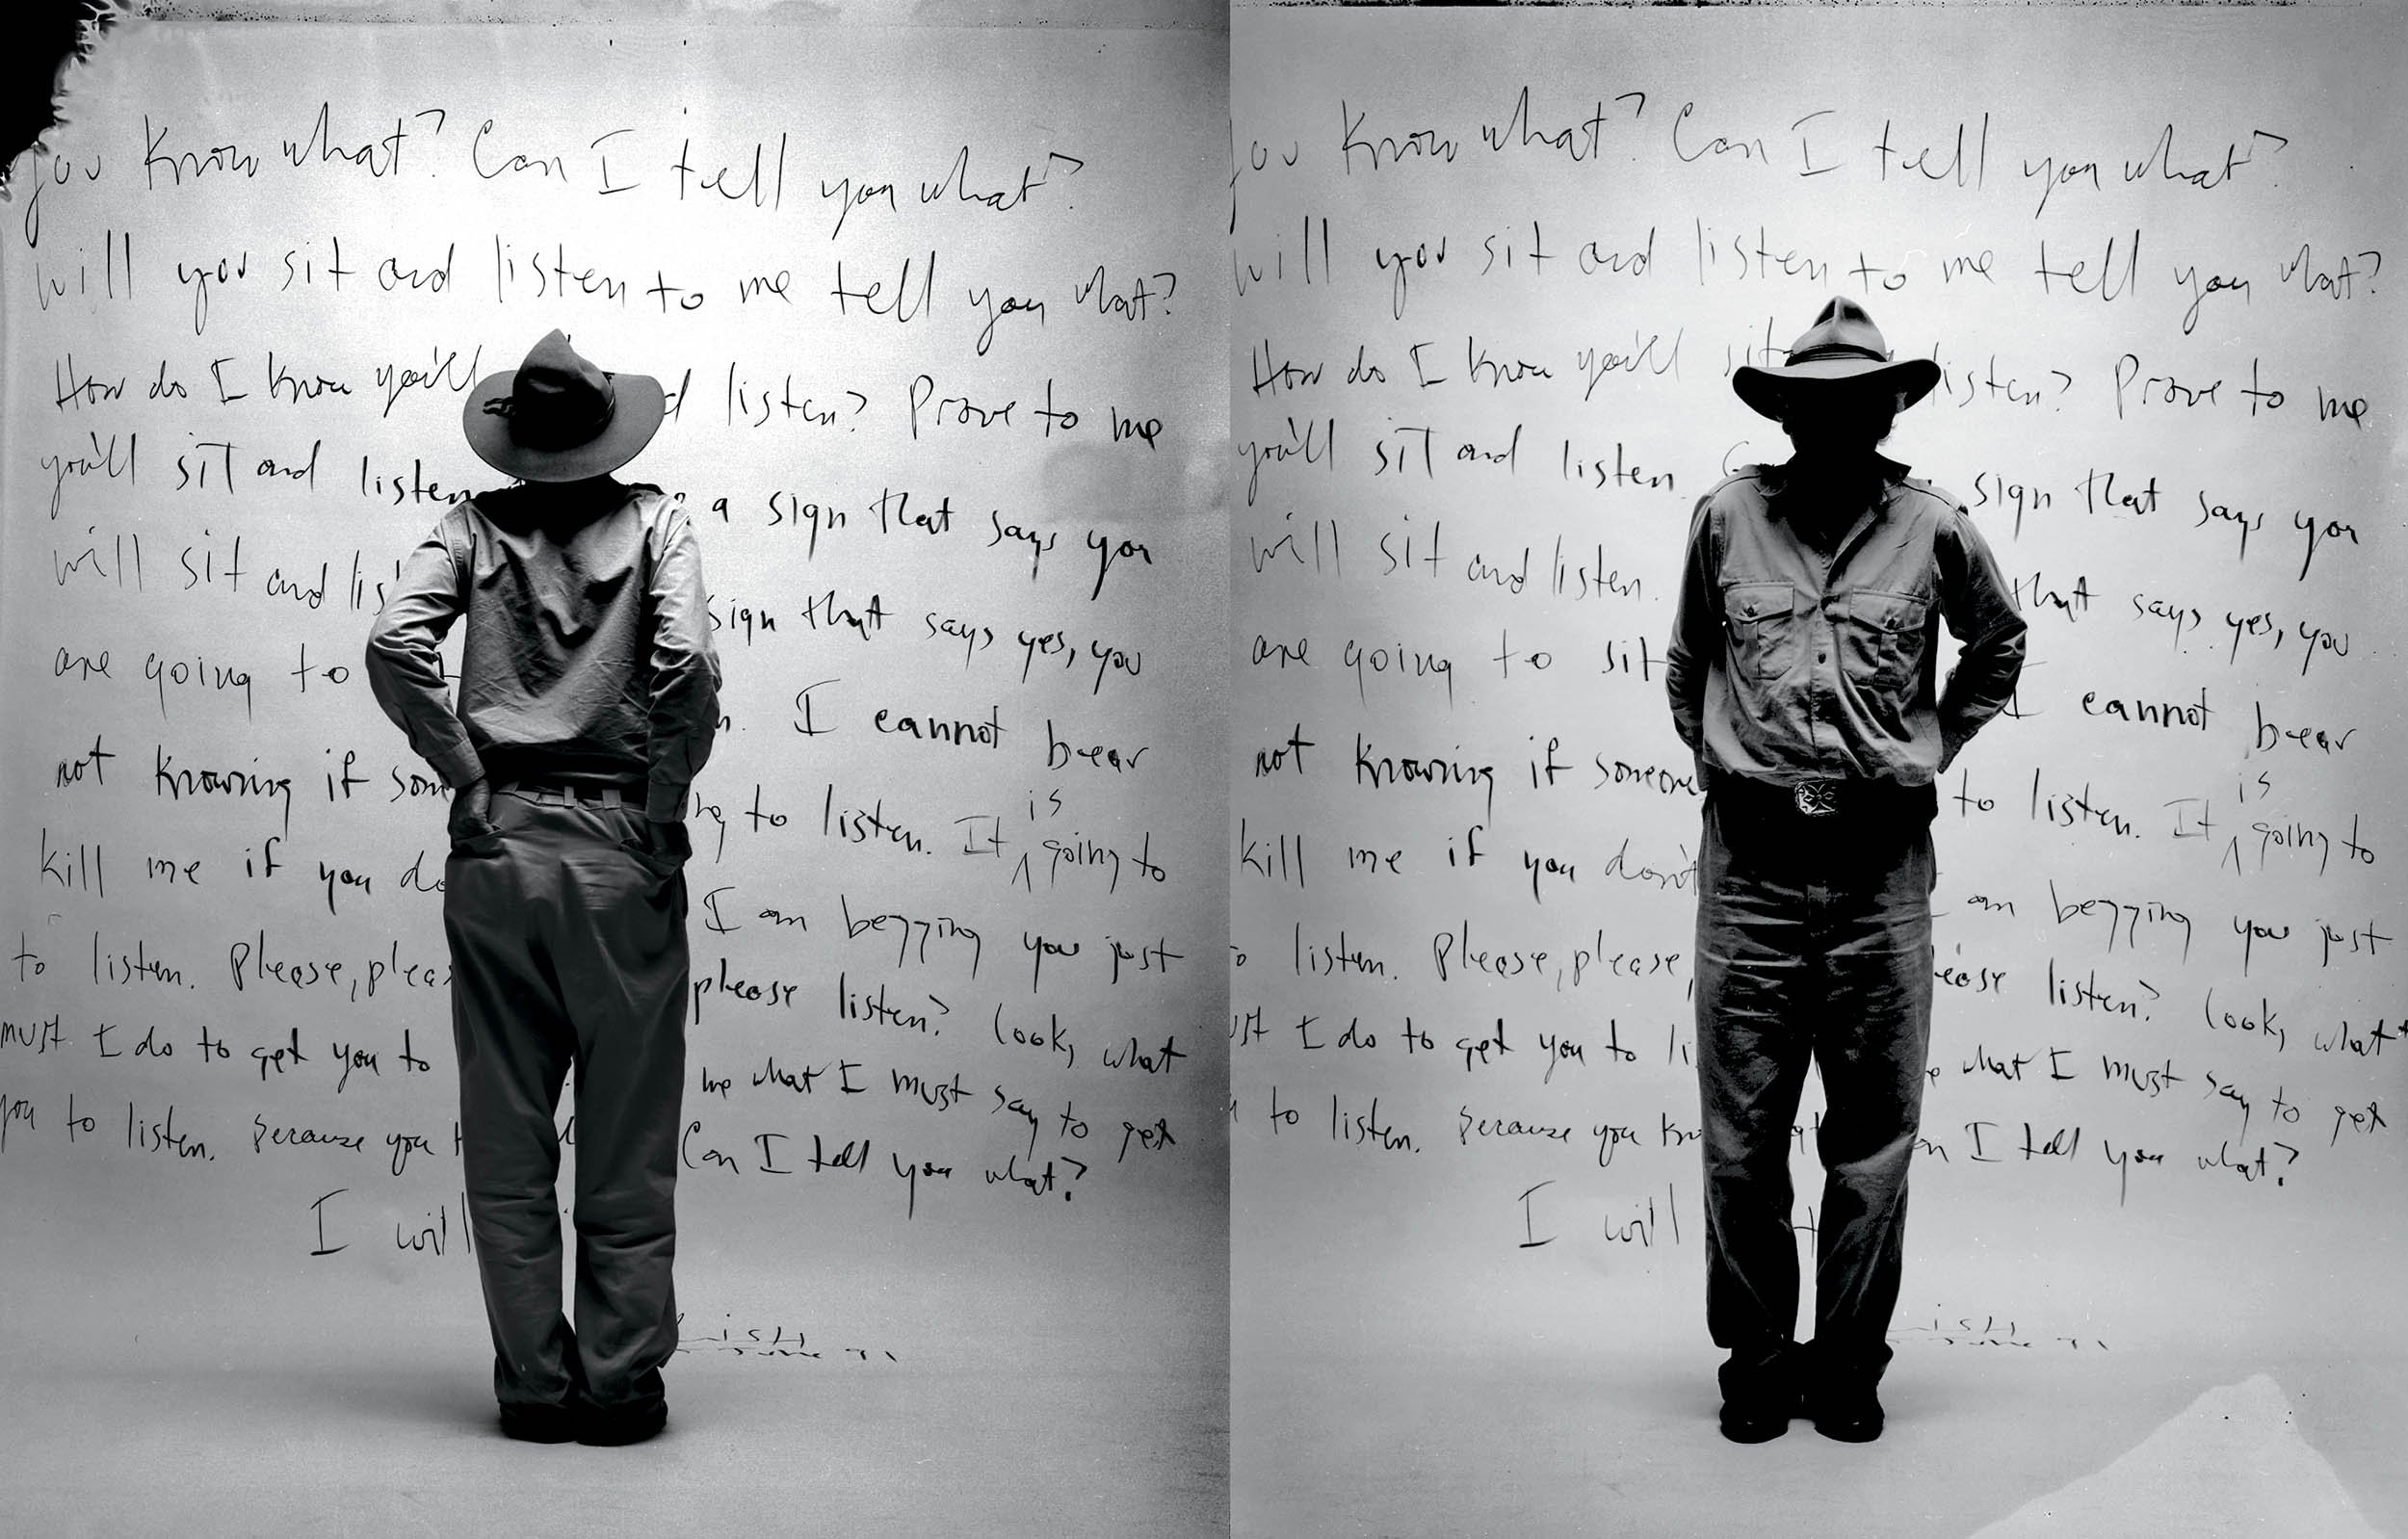 you know what? Can I tell you what?
will you sit and listen to me tell you what?
How do I know you'll listen? Prove to me
you'll sit and listen a sign that says you
will sit and lis sign that says yes, you
are going to I cannot bear
not knowing if som ng to listen. It is going to
kill me if you do I am begging you just
to listen. Please, pleas please listen? Look, what
must I do to get you to me what I must say to get
you to listen. Because you Can I tell you what?
I will
Lish
you know what? Can I tell you what?
will you sit and listen to me tell you what?
How do I know you'll sit listen? Prove to me
you'll sit and listen. sign that says you
will sit and listen. that says yes, you
are going to sit I cannot bear
not knowing if someone to listen. It is going to
kill me if you don't am begging you just
to listen. Please, please, ease listen? Look, what
ust I do to get you to li e what I must say to get
u to listen. Because you kn an I tell you what?
I will
ish